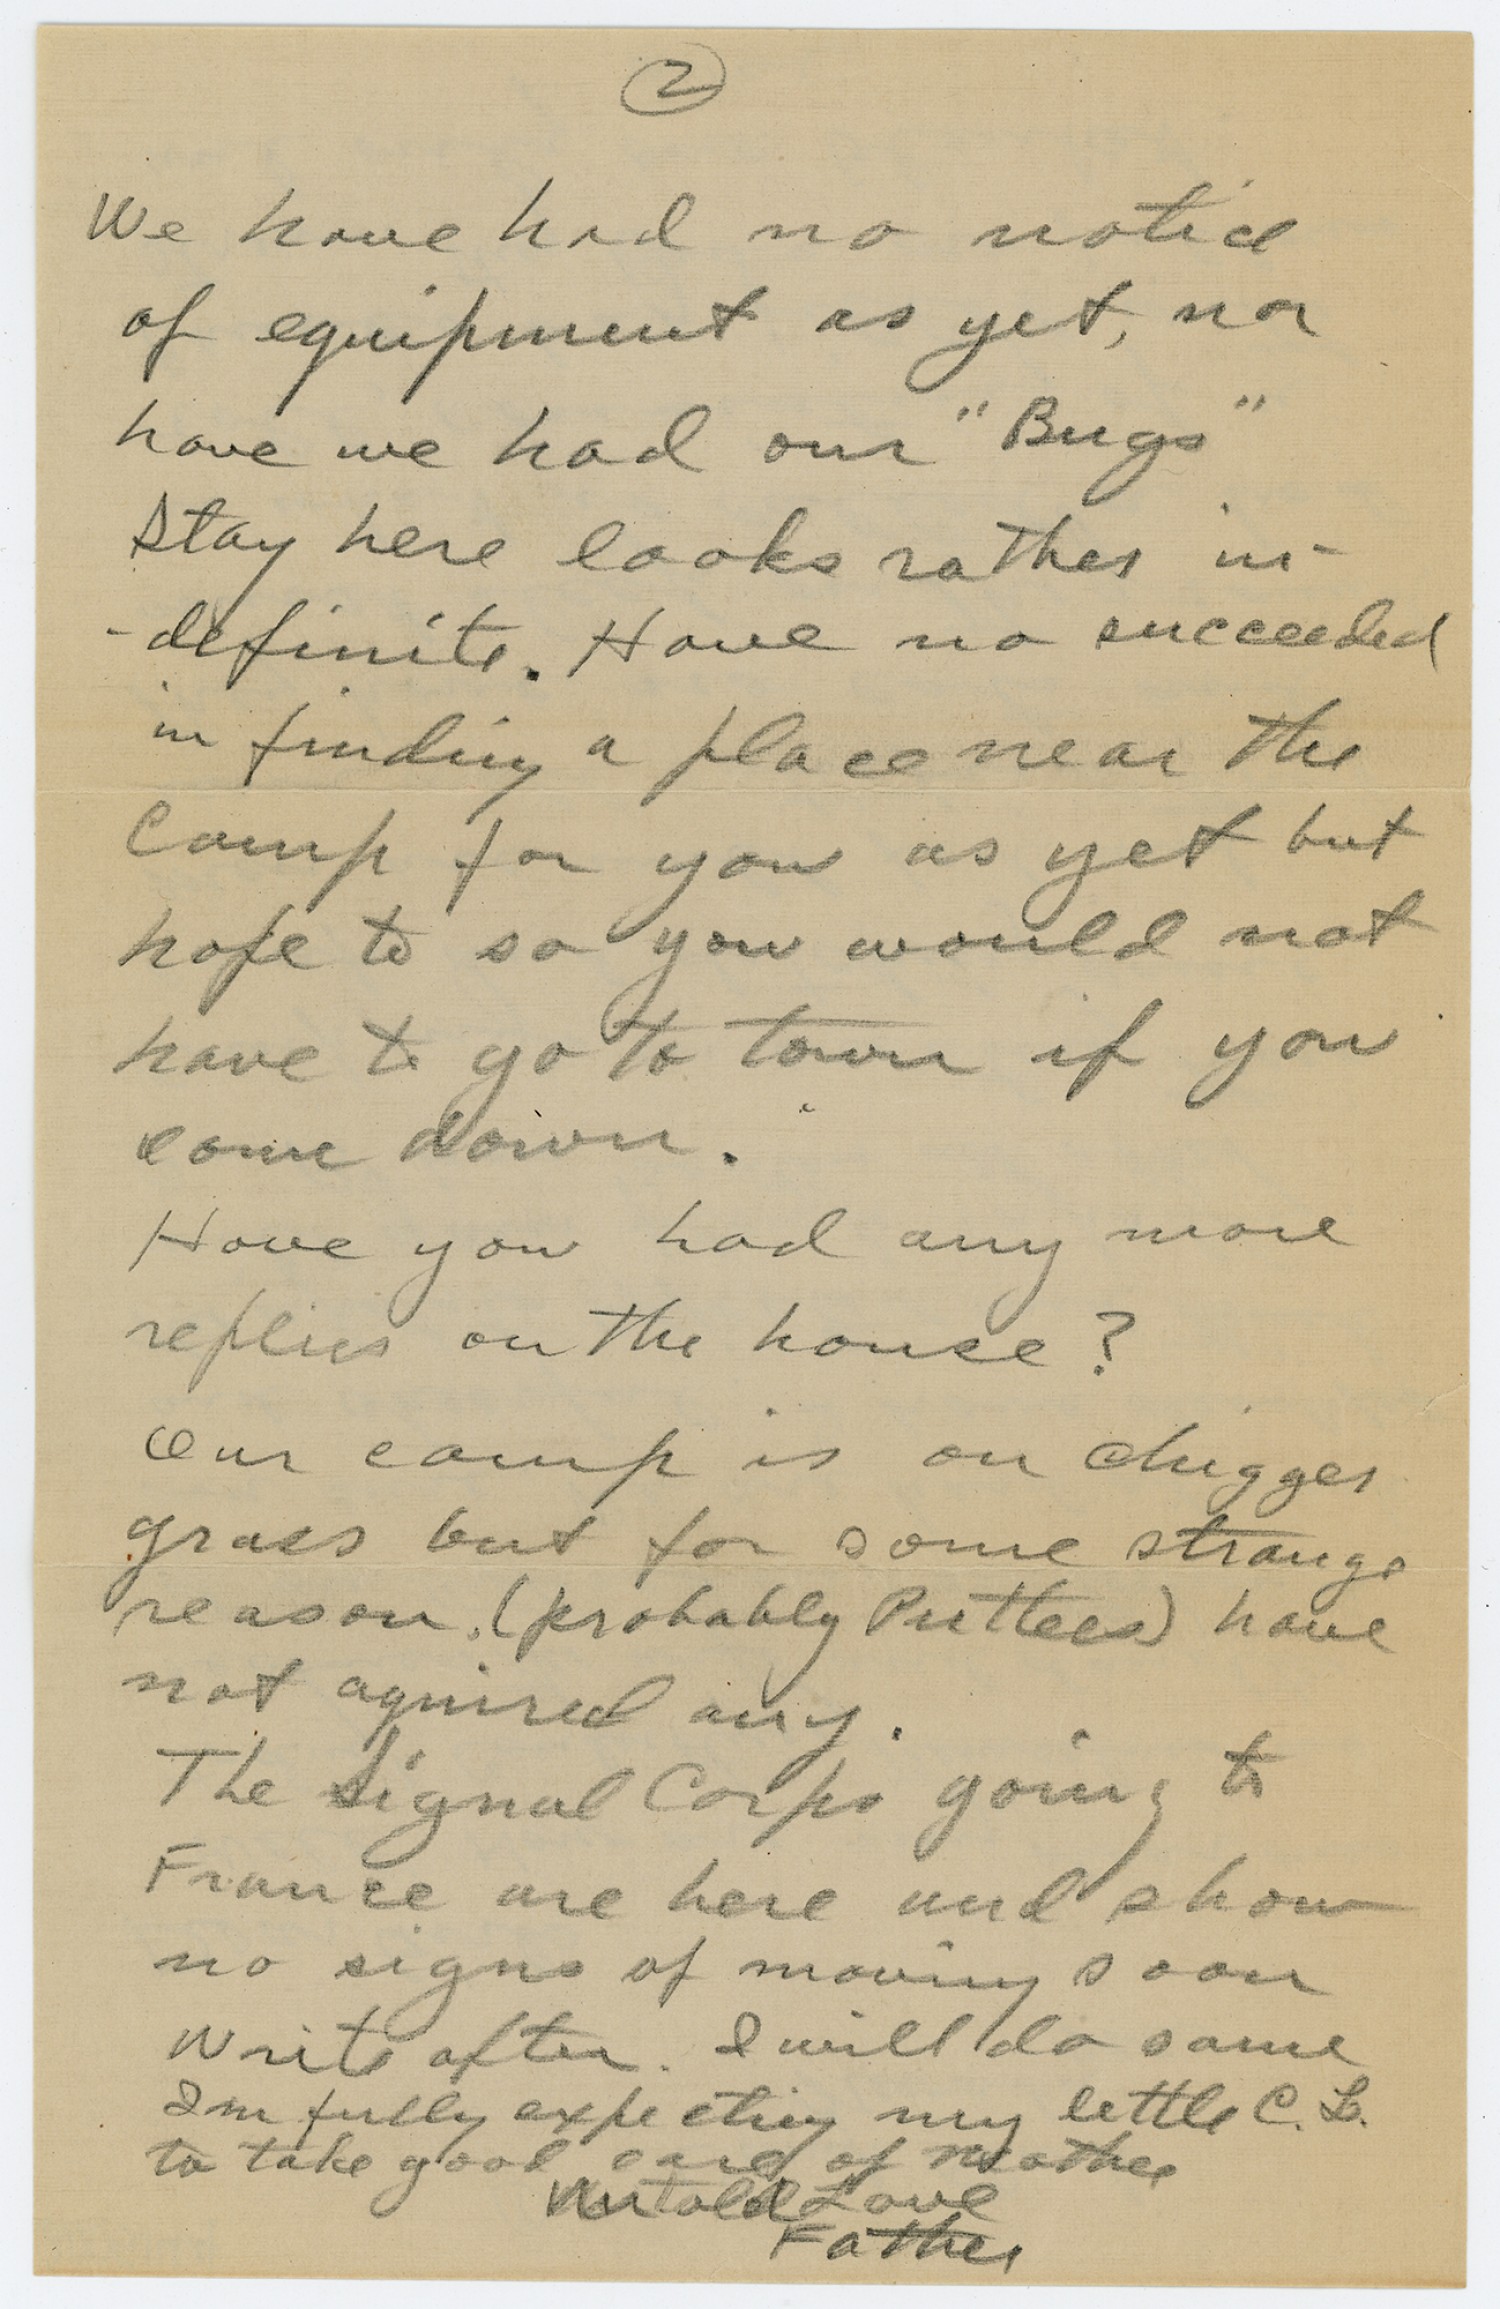 2
We have had no notice
of equipment as yet, nor
have we had our "Bugs"
Stay here looks rather in-
-definite. Have no succeeded
in finding a place near the
Camp for you as yet but
hope to so you would not
have to go to town if you
come down.
Have you had any more
replies on the house?
Our camp is on chigger
grass but for some strange
reason (probably Puttees) have
not aquired any.
The Signal Corps going to
France are here and show
no signs of moving soon
Write often. I will do same
Im fully expecting my little C. L.
to take good care of Mother
Untold Love
Father